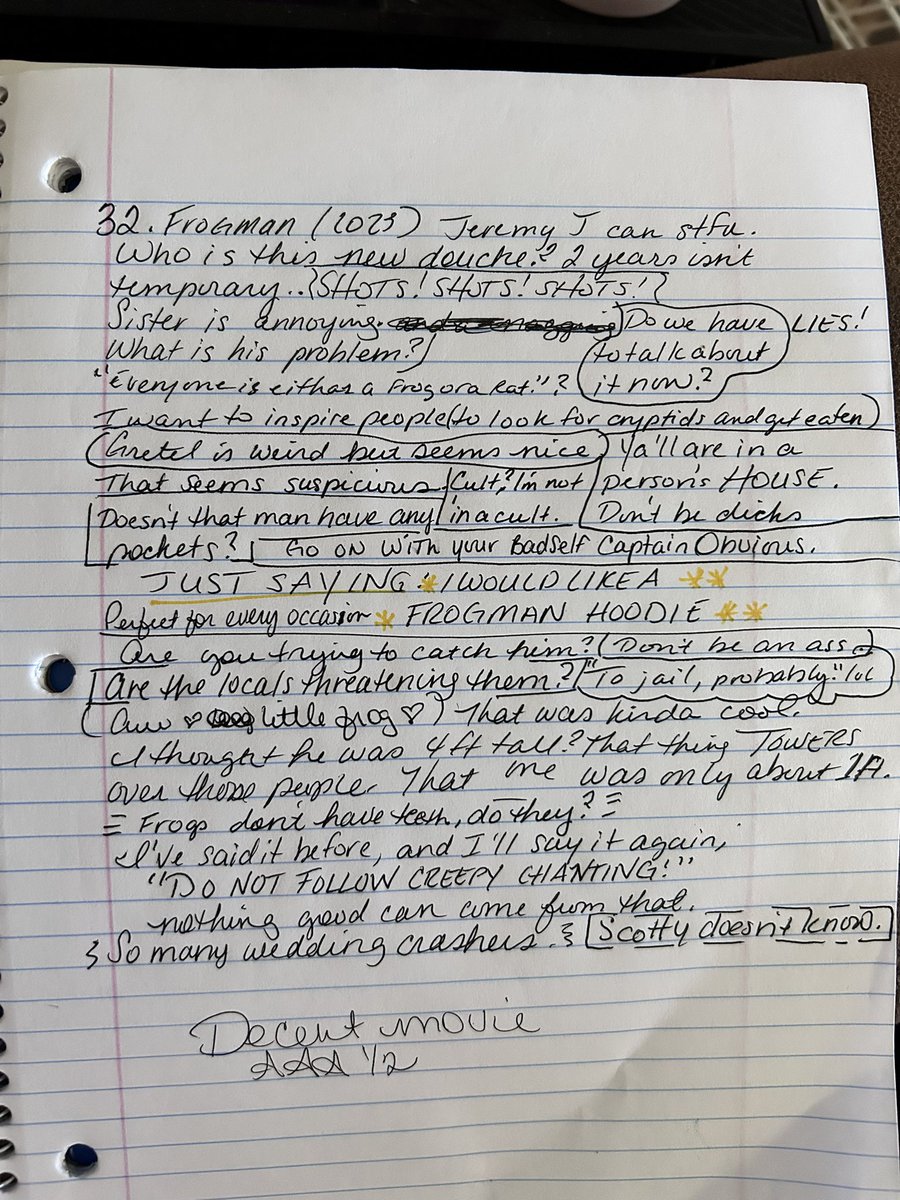 32. Frogman (2023) Jeremy J can stfu.
Who is this new douche? 2 years isn't
temporary.. {SHOTS! SHOTS! SHOTS!}
Sister is annoying. Do we have LIES!
What is his problem? to talk about
"Everyone is either a Frog or a Rat."? it now?
I want to inspire people (to look for cryptids and get eaten)
(Gretel is weird but seems nice) Ya'll are in a
That seems suspicious Cult? I'm not person's HOUSE.
Doesn't that man have any in a cult. Don't be dicks
pockets? Go ON WITH your BadSelf Captain Obvious.
JUST SAYING: * I WOULD LIKE A **
Perfect for every occasion * FROGMAN HOODIE **
Are you trying to catch him? (Don't be an ass.)
Are the locals threatening them? "To jail, probably." lol
(Aww ♡ little frog ♡) That was kinda cool.
I thought he was 4 ft tall? That thing TOWERS
over those people. That one was only about 1ft.
= Frogs don't have teeth, do they? =
I've said it before, and I'll say it again,
"DO NOT FOLLOW CREEPY CHANTING!"
nothing good can come from that.
So many wedding crashers. Scotty doesn't know.
Decent movie
☆☆☆ 1/2